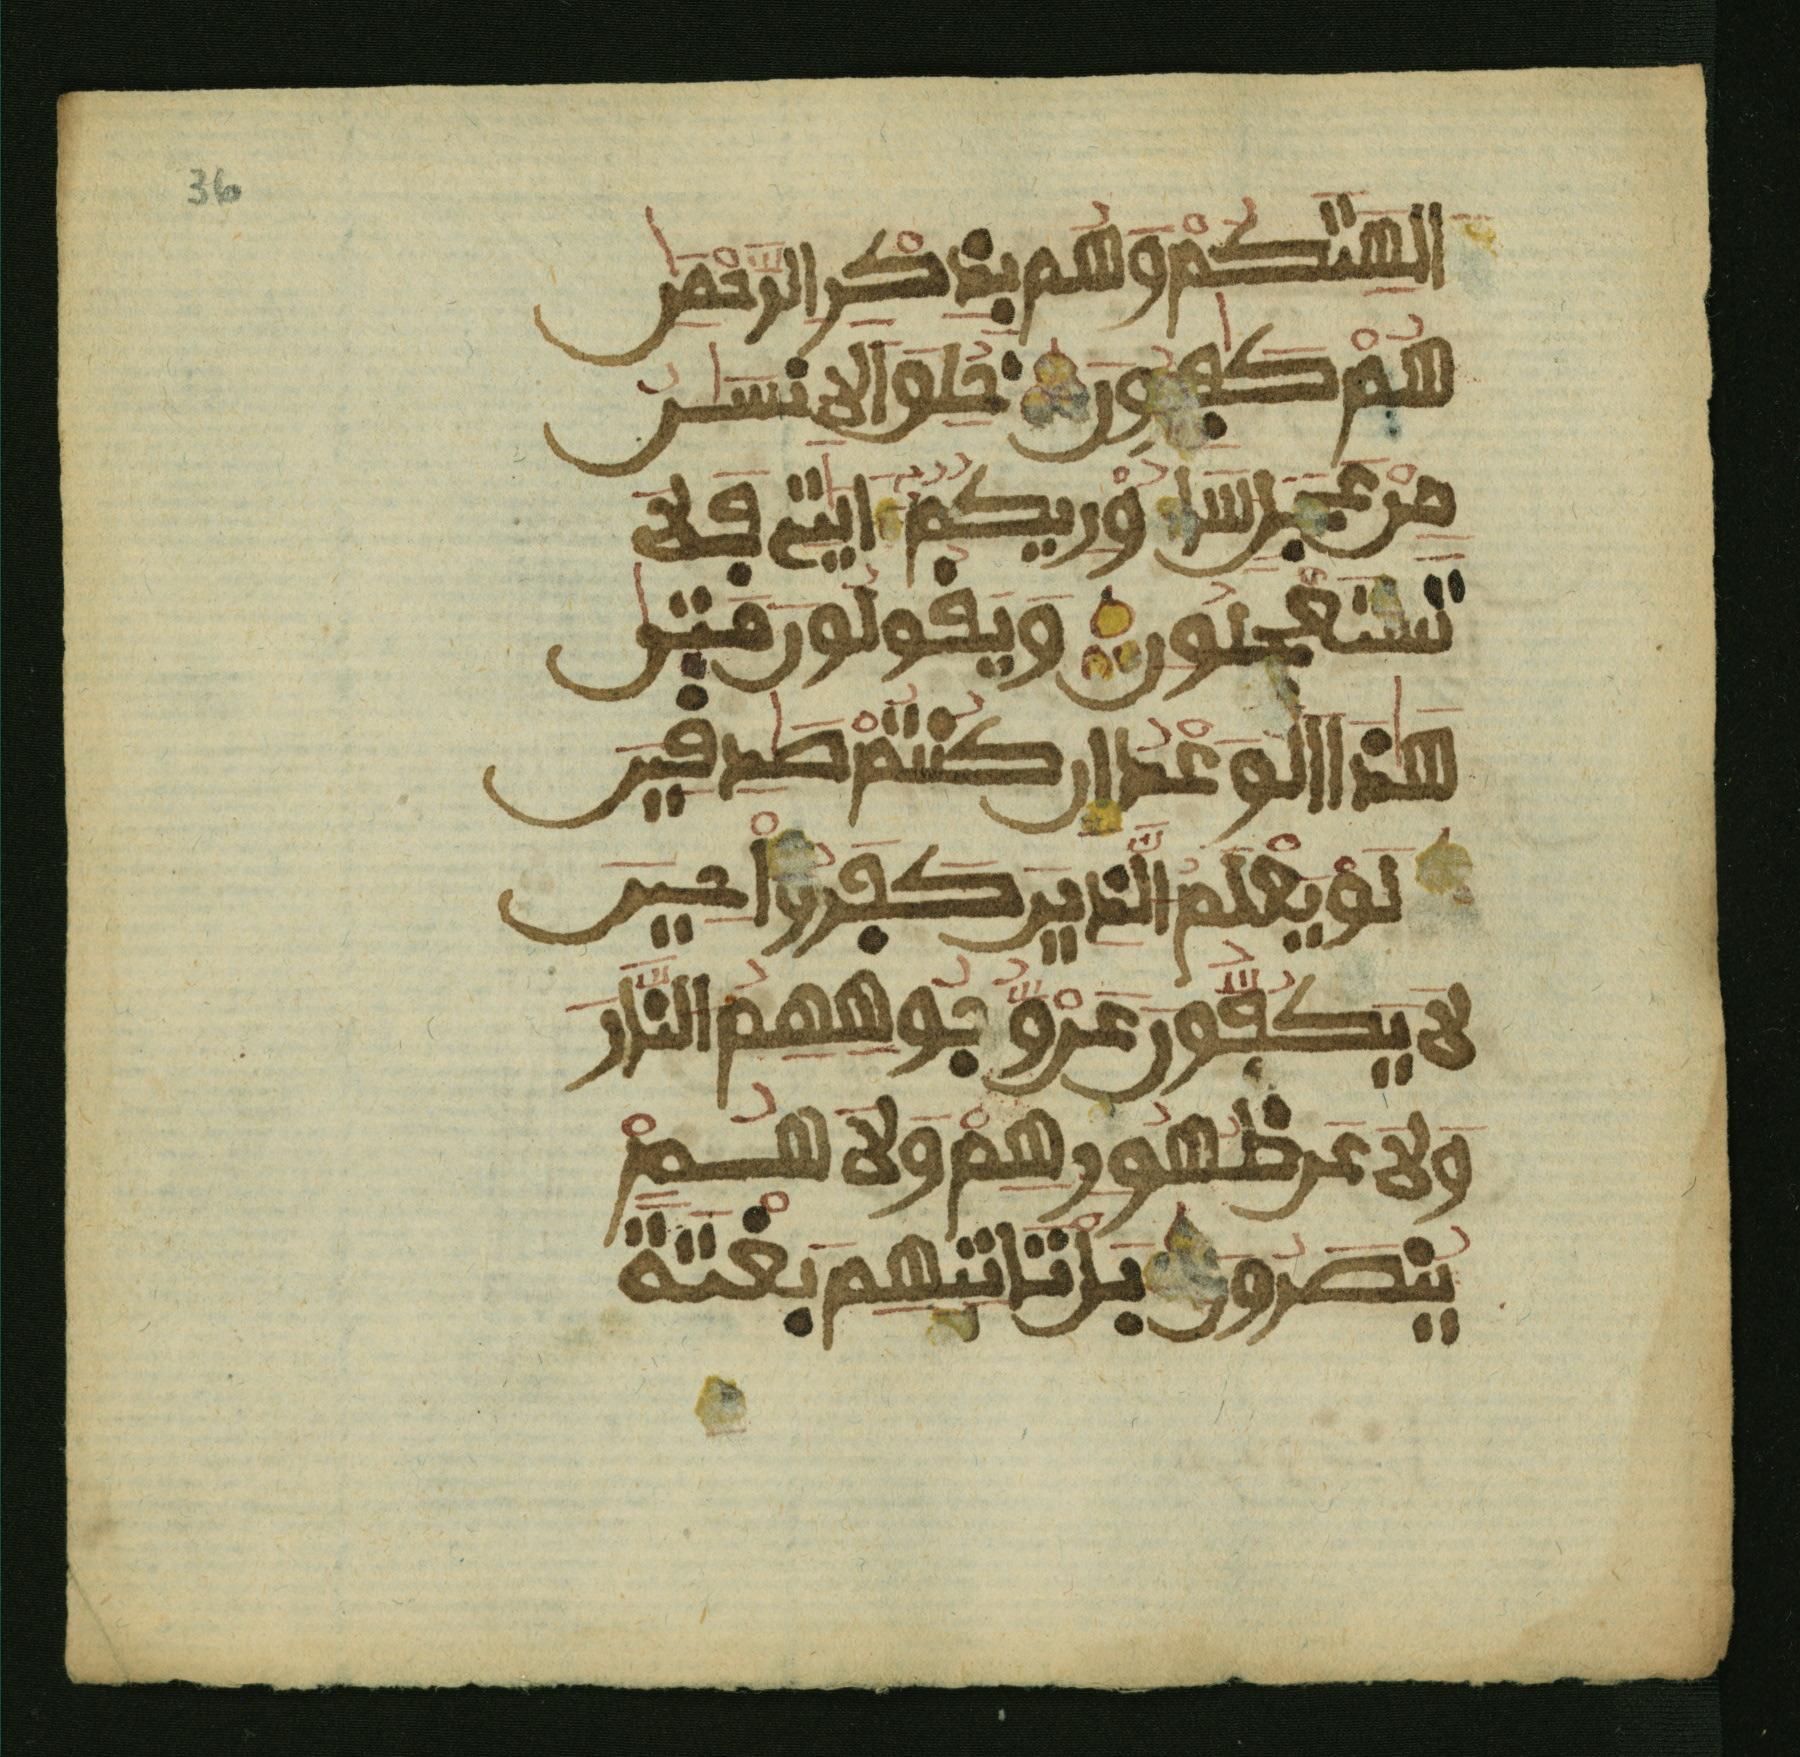 36
ءالهتكم وهم بذكر الرحمن
هم كفرون خلق الانسن
من عجل ساوريكم ءايتي فلا
تستعجلون ويقولون متى
هذا الوعد ان كنتم صدقين
لو يعلم الذين كفروا حين
لا يكفون عن وجوههم النار
ولا عن ظهورهم ولا هم
ينصرون بل تاتيهم بغتة